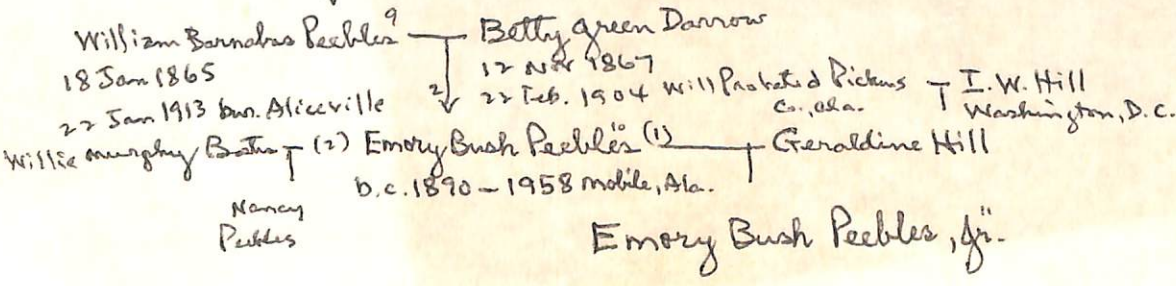 William Barnabas Peebles 9 Betty Green Darrow
18 Jan 1865 12 Nov 1867
22 Jan 1913 bur. Aliceville 2 22 Feb. 1904 Will Probated Pickens I. W. Hill
Co., Ala. Washington, D.C.
Willie Murphy (2) Emory Bush Peebles 10 (1) Geraldine Hill
b.c. 1890 - 1958 Mobile, Ala.
Nancy
Peebles
Emory Bush Peebles, Jr.